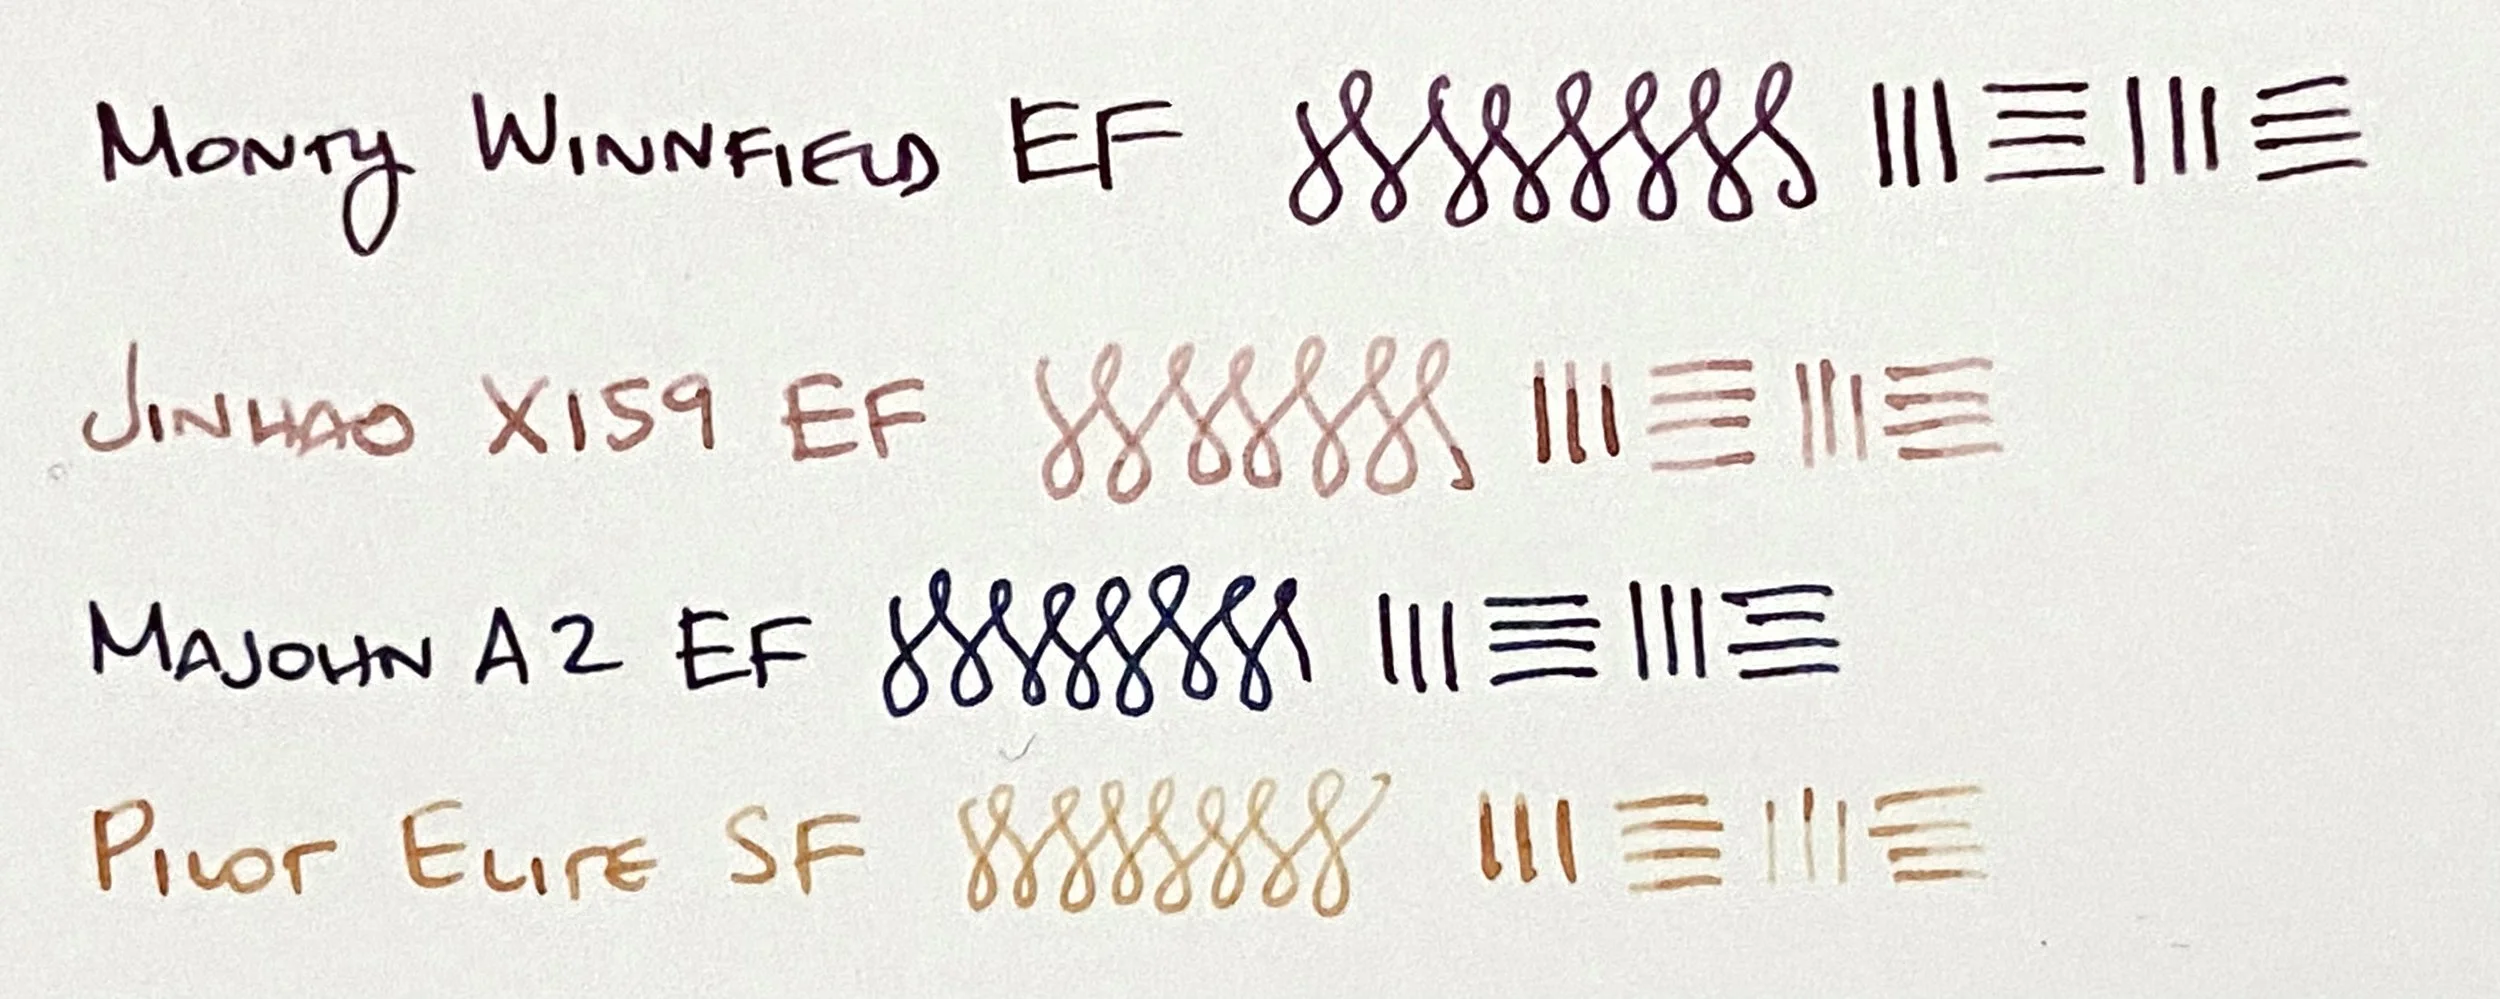 Monty Winnfield EF
Jinhao X159 EF
Majohn A2 EF
Pilot Elite SF